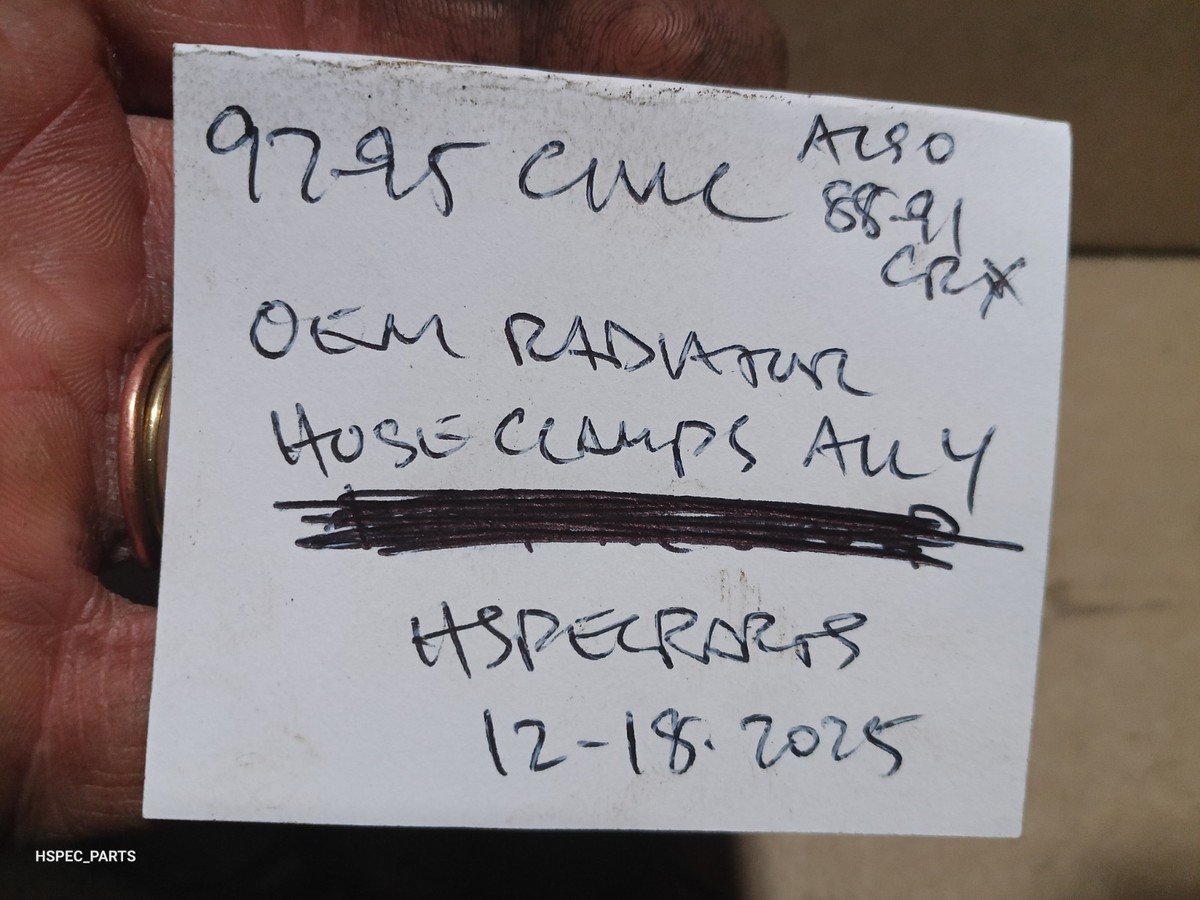 97-95 CIVIC
ALSO
88-91
CRX
OEM RADIATOR
HOSE CLAMPS ALL 4
HSPECPARTS
12-18-2025
HSPEC_PARTS